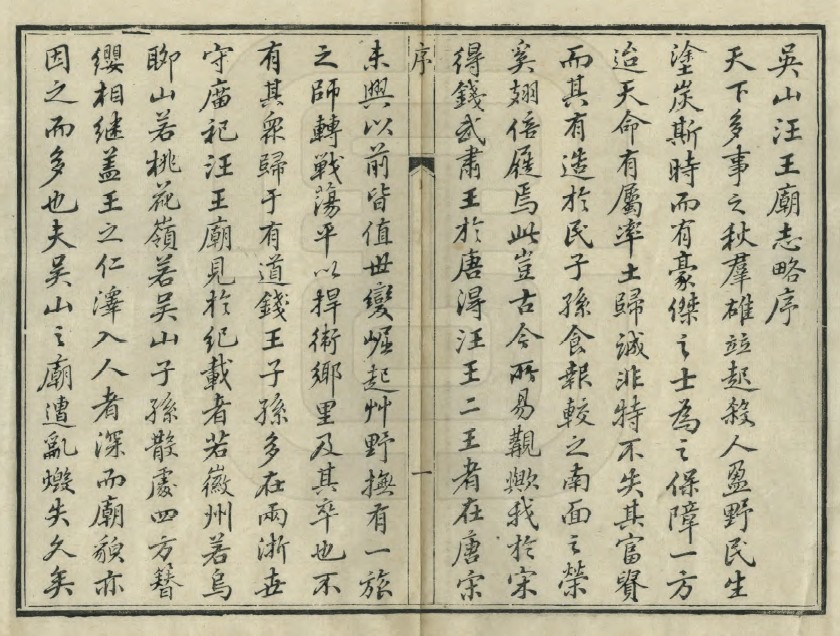 吳山汪王廟志略序
天下多事之秋羣雄竝起殺人盈野民生
塗炭斯時而有豪傑之士為之保障一方
迨天命有屬率土歸誠非特不失其富貴
而其有造於民子孫食報較之南面之榮
奚翅倍蓰焉此豈古今所易覯歟我於宋
得錢武肅王於唐得汪王二王者在唐宗
序
一
未興以前皆值世變崛起艸野撫有一旅
之師轉戰蕩平以捍衛鄉里及其卒也不
有其眾歸于有道錢王子孫多在兩浙世
守廟祀汪王廟見於紀載者若徽州若烏
聊山若桃花嶺若吳山子孫散處四方簪
纓相繼蓋王之仁澤入人者深而廟貌亦
因之而多也夫吳山之廟遭亂燬失久矣